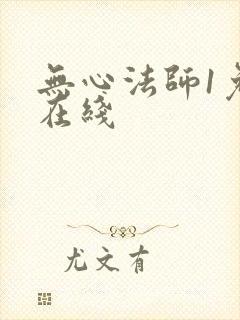 無心法師1免
在綫
尤文有